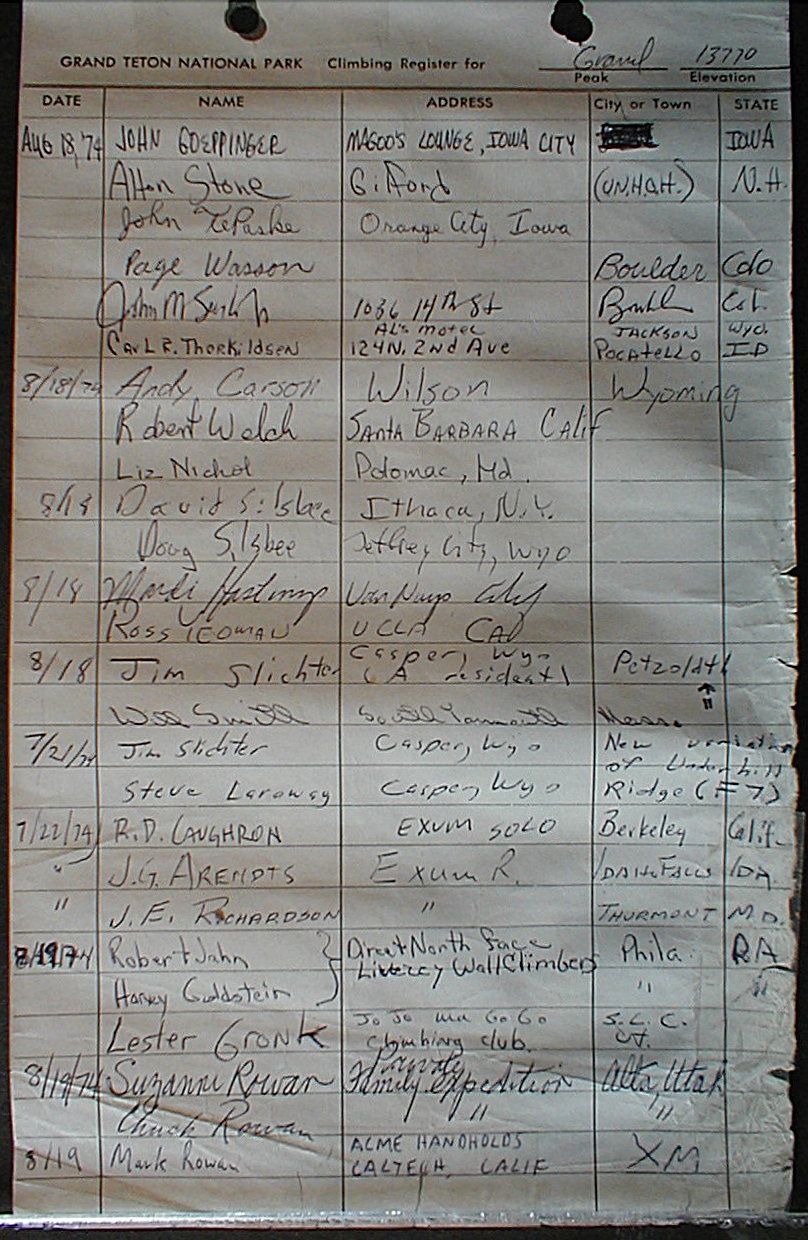 GRAND TETON NATIONAL PARK Climbing Register for Grand 13770
Peak Elevation
DATE NAME ADDRESS City or Town STATE
AUG 18, '74 JOHN GOEPPINGER MAGOO'S LOUNGE, IOWA CITY IOWA
Alton Stone Gilford (U.N.H.O.H.) N.H.
John TePaske Orange City, Iowa
Page Wasson Boulder Colo
John M 1036 14th St
AL'S MOTEL JACKSON WYO.
CARL R. THORKILDSEN 124 N. 2nd Ave POCATELLO ID
8/18/74 Andy Carson Wilson Wyoming
Robert Welch SANTA BARBARA Calif
Liz Nichol Potomac, Md.
8/18 David Silsbee Ithaca, N.Y.
Doug Silsbee Jeffrey City, Wyo
8/18 Hastings Van Nuys Calif
ROSS YEOMAN UCLA CAL
8/18 Jim Slichter Casper, Wyo Petzoldt
(A resident)
"
Will Smith South Yarmouth Mass.
7/21/74 Jim Slichter Casper, Wyo New variation
of Underhill
Steve Laroway Casper, Wyo Ridge (F7)
7/22/74 R.D. CAUGHRON EXUM SOLO Berkeley Calif.
" J.G. ARENDTS Exum R. IDAHO FALLS IDA.
" J.E. RICHARDSON " THURMONT M.D.
8/19/74 Robert Jahn Direct North face Phila. PA
Livezey Wall Climbers
Harvey Goldstein " "
Lester GRONK Jo Jo ma Go Go S.L.C.
climbing club. UT.
8/19/74 Suzanne Rowan Private Alta, Utah
Family expedition
Chuck Rowan " "
8/19 Mark Rowan ACME HANDHOLDS XM
CALTECH, CALIF